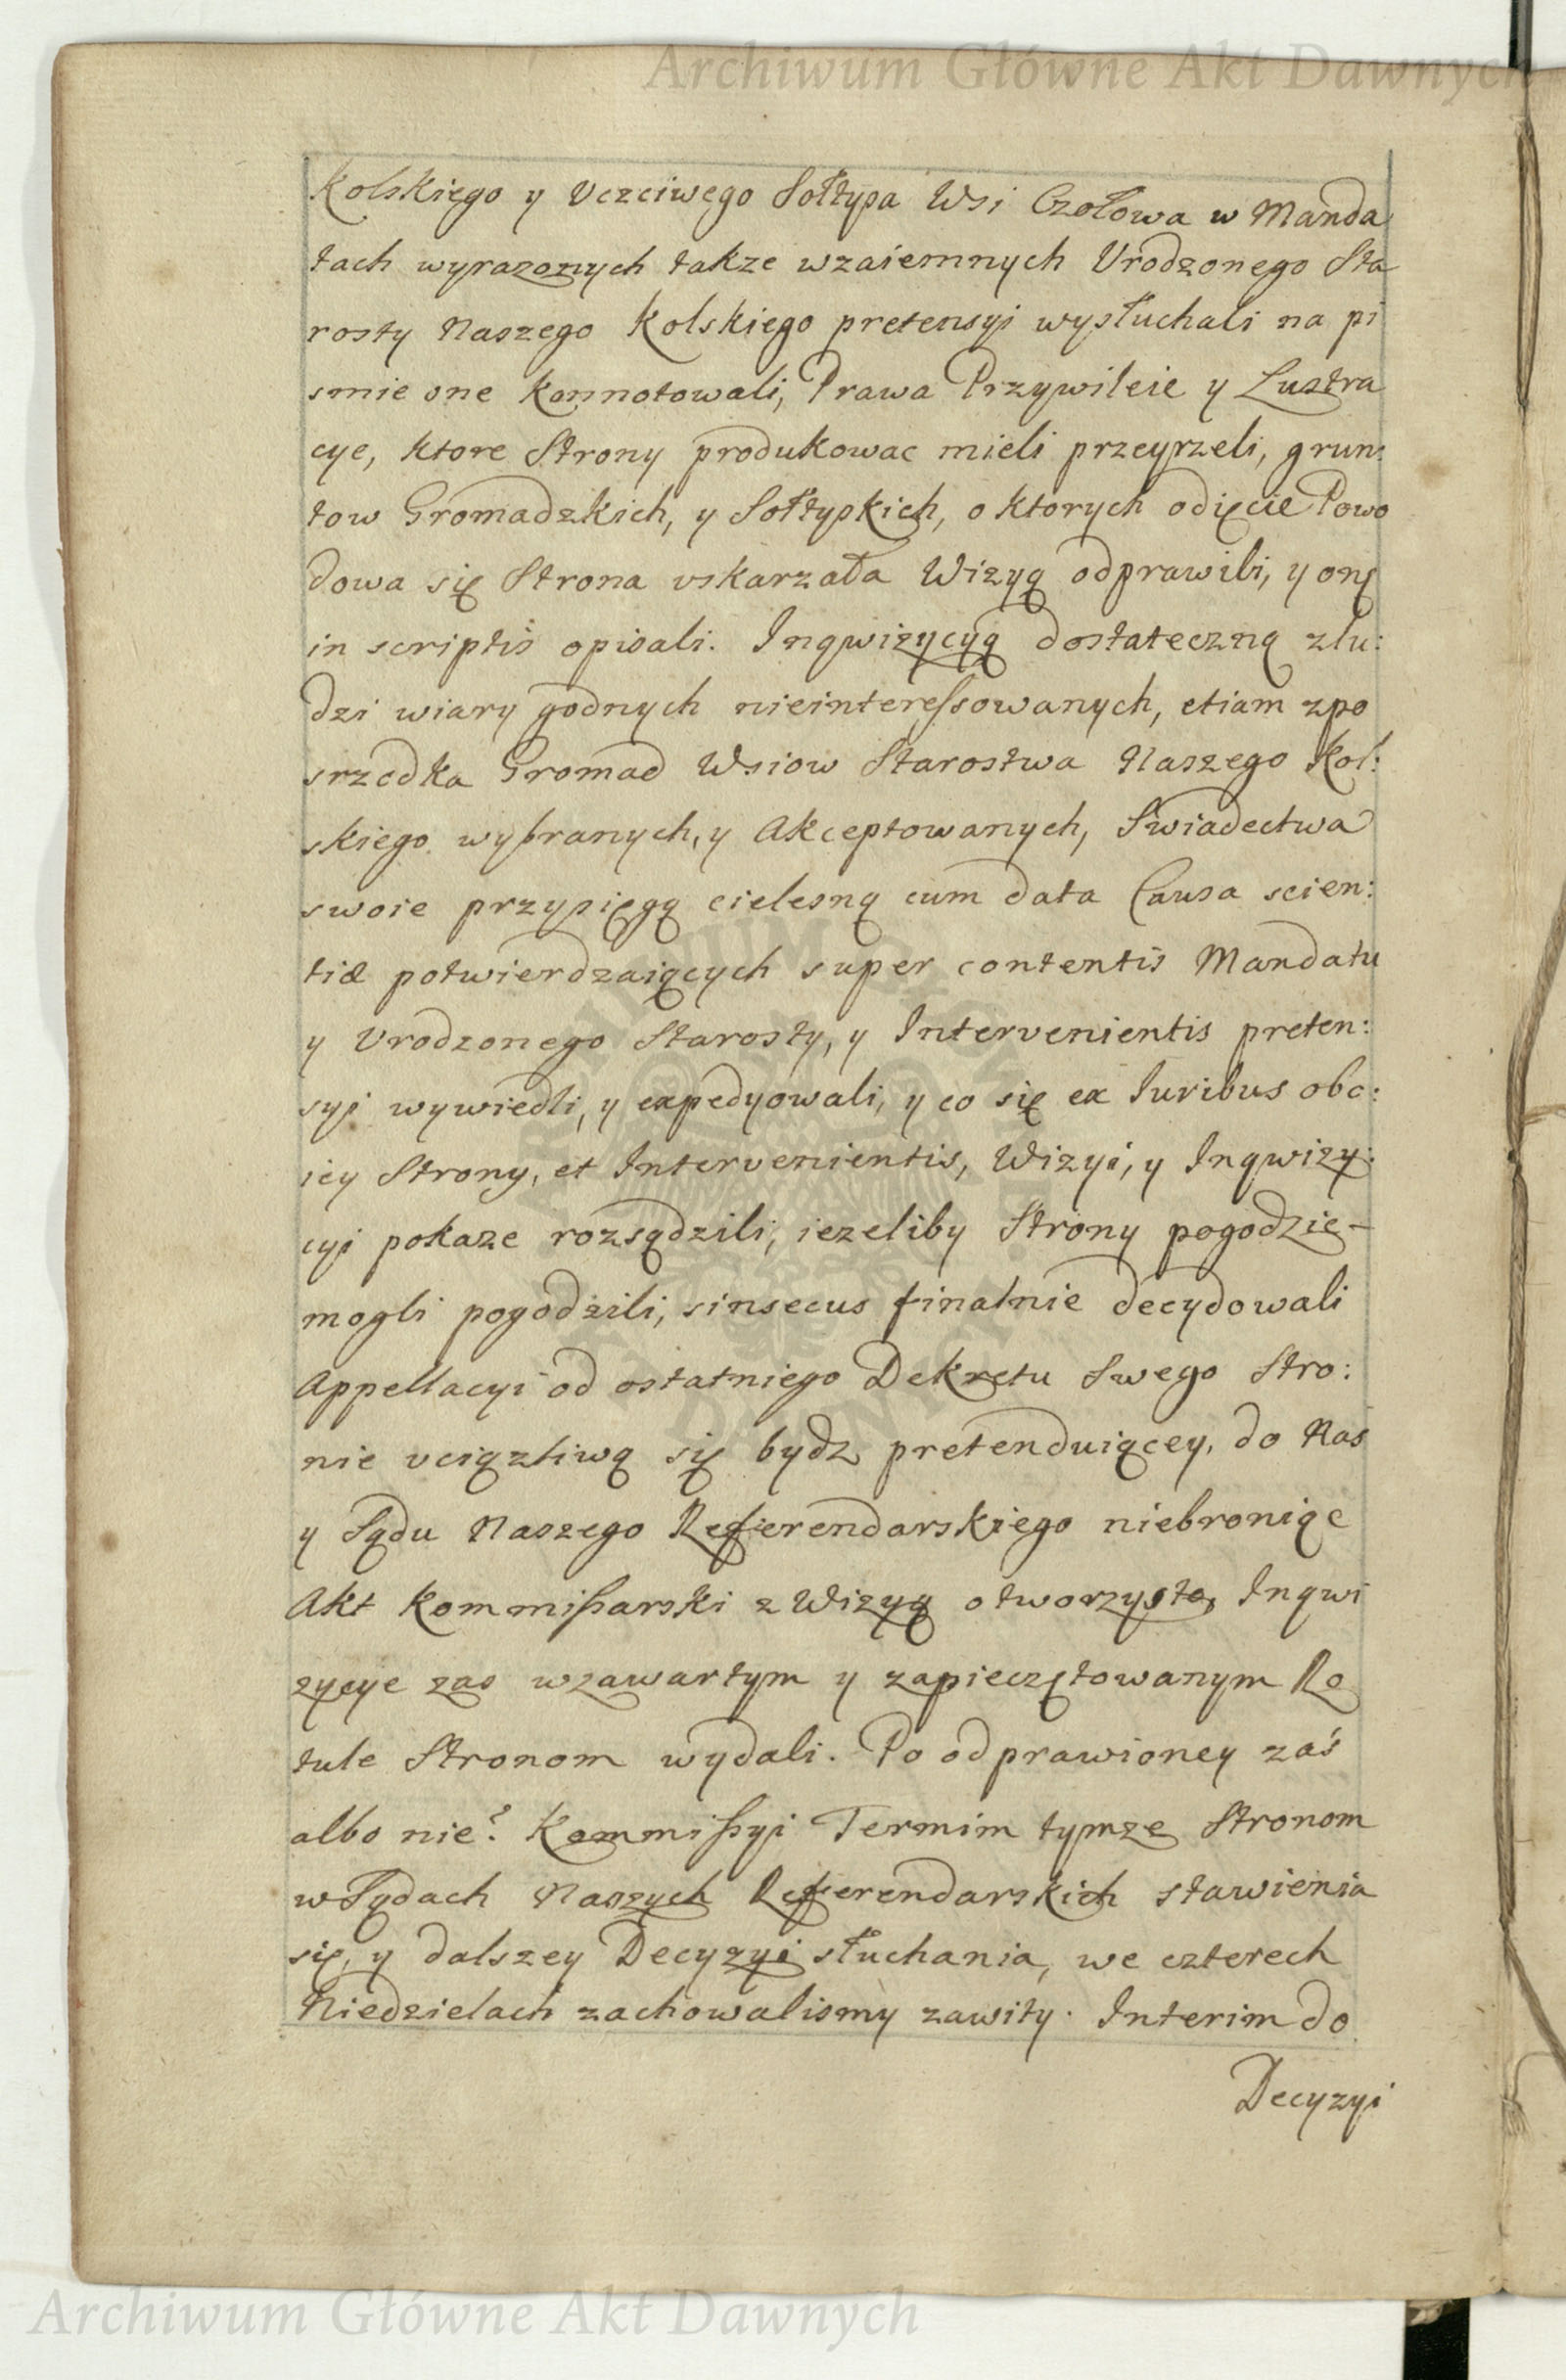 Archiwum Główne Akt Dawnych
Kolskiego y Vczciwego Sołtysa Wsi Czołowa w Manda
tach wyrazonych takze wzaiemnych Vrodzonego Sta
rosty Naszego Kolskiego pretensyi wysłuchali na pi
smie one konnotowali, Prawa Przywileie y Lustra
cye, ktore Strony produkowac mieli przeyrzeli, grun:
tow Gromadzkich, y Sołtyskich, o ktorych odięcie Powo
dowa się Strona vskarzała Wizyą odprawili, y onę
in scriptis opisali. Inqwizycyą dostateczną zlu:
dzi wiary godnych nieinteressowanych, etiam zpo
srzodka Gromad Wsiow Starostwa Naszego Kol:
skiego wybranych, y Akceptowanych, Swiadectwa
swoie przysięgą cielesną cum data Causa scien:
tiæ potwierdzaiących super contentis Mandatu
y Vrodzonego Starosty, y Intervenientis preten:
syi wywiedli, y expedyowali, y co się ex Iuribus obo:
iey Strony, et Intervenientis, Wizyi, y Inqwizy:
cyi pokaze rozsądzili, iezeliby Strony pogodzie-
mogli pogodzili, sinsecus finalnie decydowali
Appellacyi od ostatniego Dekretu Swego Stro:
nie vciązliwą się bydz pretenduiącey, do Nas
y Sądu Naszego Referendarskiego niebroniąc
Akt Kommissarski z Wizyą otworzysto, Inqwi
zycye zas wzawartym y zapieczętowanym Ro
tule Stronom wydali. Po odprawioney zaś
albo nie? Kommissyi Termim tymze Stronom
w Sądach Naszych Referendarskich stawienia
się, y dalszey Decyzyi słuchania, we czterech
Niedzielach zachowalismy zawity. Interim do
Decyzyi
Archiwum Główne Akt Dawnych